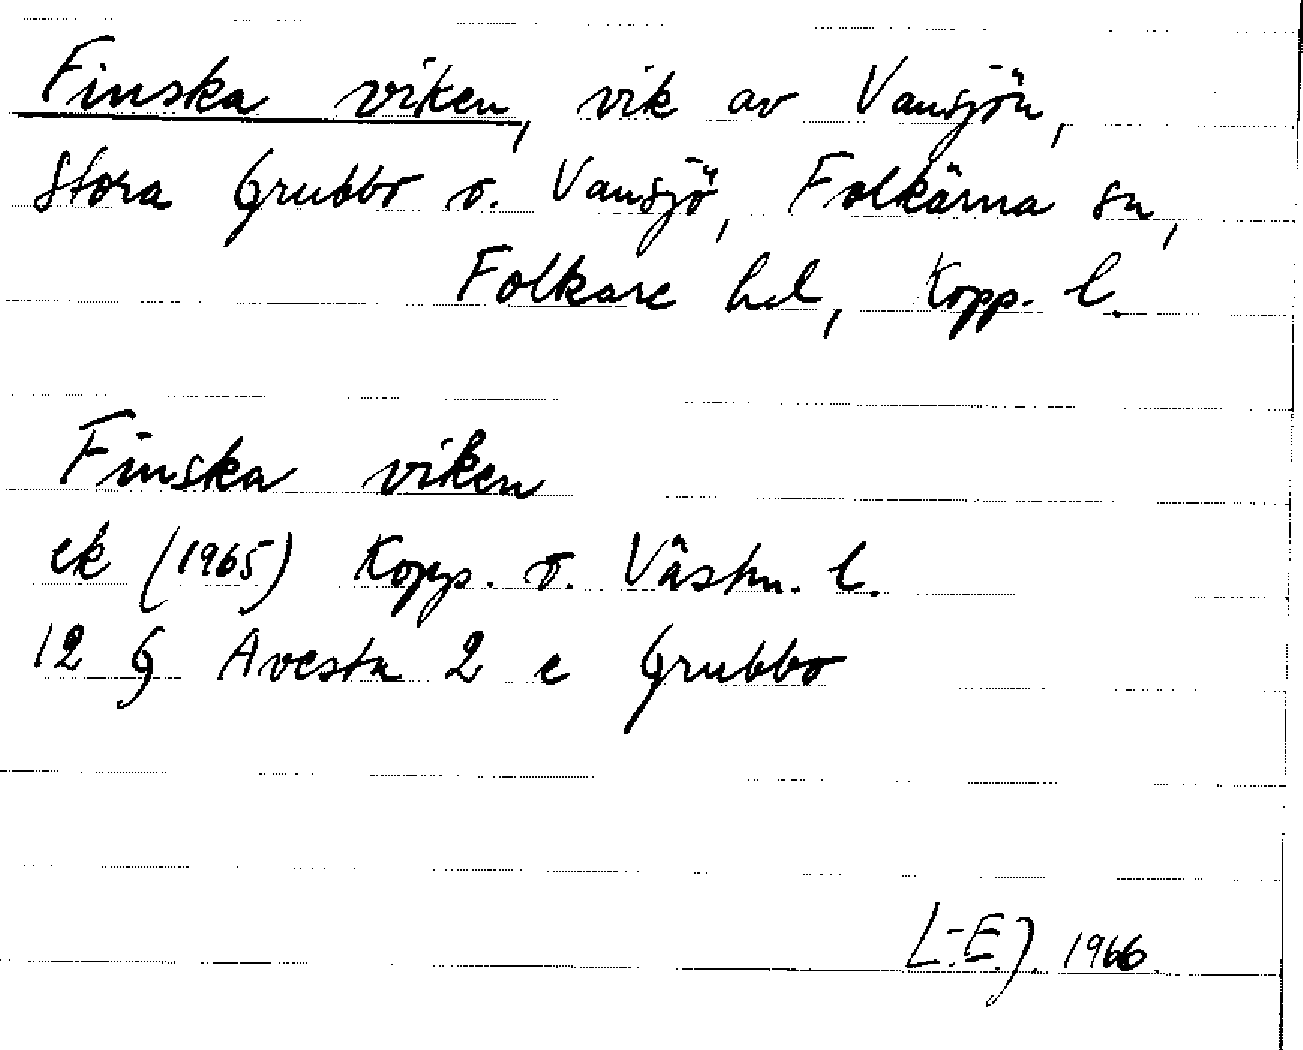 Finska viken, vik av Vansjön,
Stora Grubbo o. Vansjö, Folkärna sn,
Folkare hd, Kopp. l.
Finska viken
ek (1965) Kopp. o. Västm. l.
12 G Avesta 2 e Grubbo
L.-E.J. 1966.